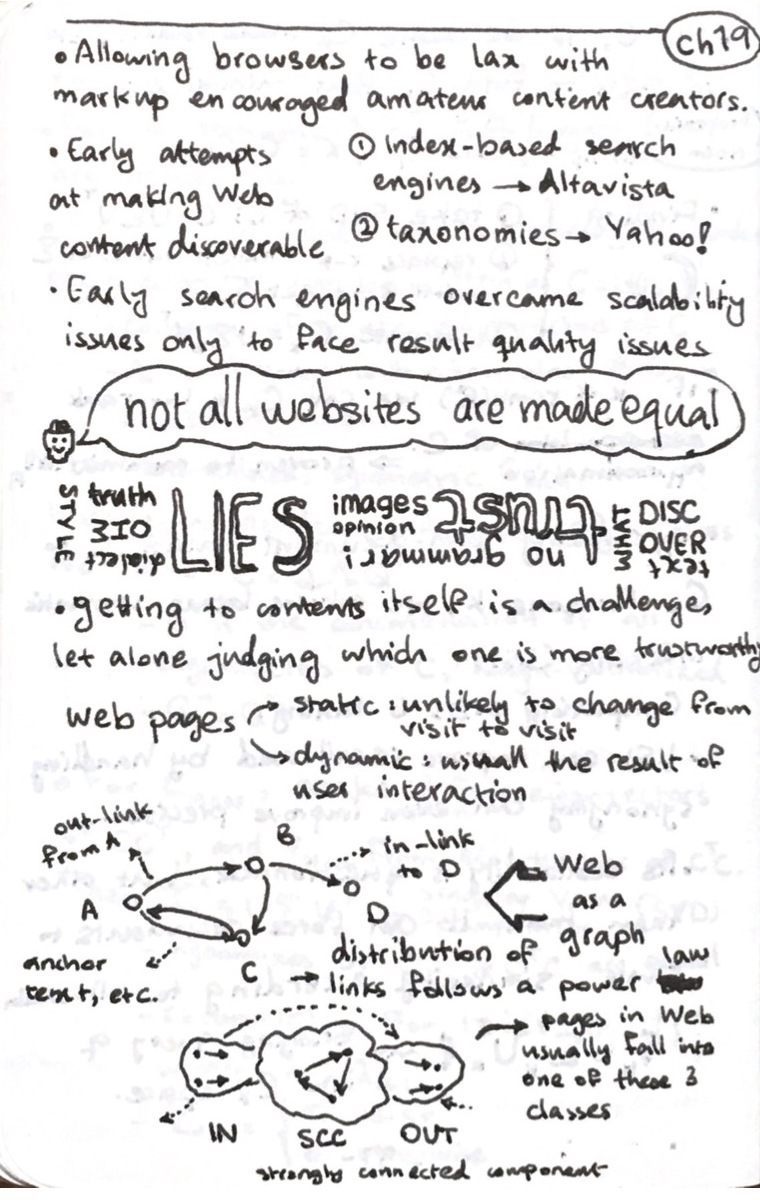 ch19
• Allowing browsers to be lax with
markup encouraged amateur content creators.
• Early attempts
at making Web
content discoverable
① Index-based search
engines → Altavista
② taxonomies → Yahoo!
• Early search engines overcame scalability
issues only to face result quality issues
not all websites are made equal
STYLE
truth
dialect
LIES
images
opinion
trust
no grammar!
WHAT
DISC
OVER
text
• getting to contents itself is a challenge,
let alone judging which one is more trustworthy
web pages
→ static : unlikely to change from
visit to visit
→ dynamic : usuall the result of
user interaction
out-link
from A
A
B
C
D
in-link
to D
anchor
text, etc.
Web
as a
graph
→ distribution of
links follows a power law
IN
SCC
OUT
strongly connected component
→ pages in Web
usually fall into
one of these 3
classes